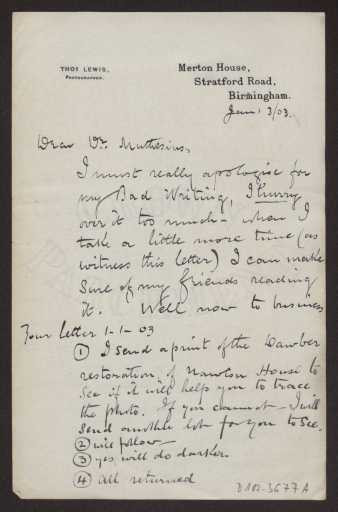 THOS LEWIS,
PHOTOGRAPHER.
Merton House,
Stratford Road,
Birmingham.
Jan 3/03.
Dear Dr. Muthesius,
I must really apologise for
my Bad Writing, I hurry
over it too much - when I
take a little more time (as
witness this letter) I can make
sure of my friends reading
it. Well now to business
Your letter 1-1-03
① I send a print of the Dawber
restoration of House to
see if it will help you to trace
the photo. If you cannot I will
send another lot for you to see.
② will follow
③ yes will do darker
④ all returned
D102-3677A